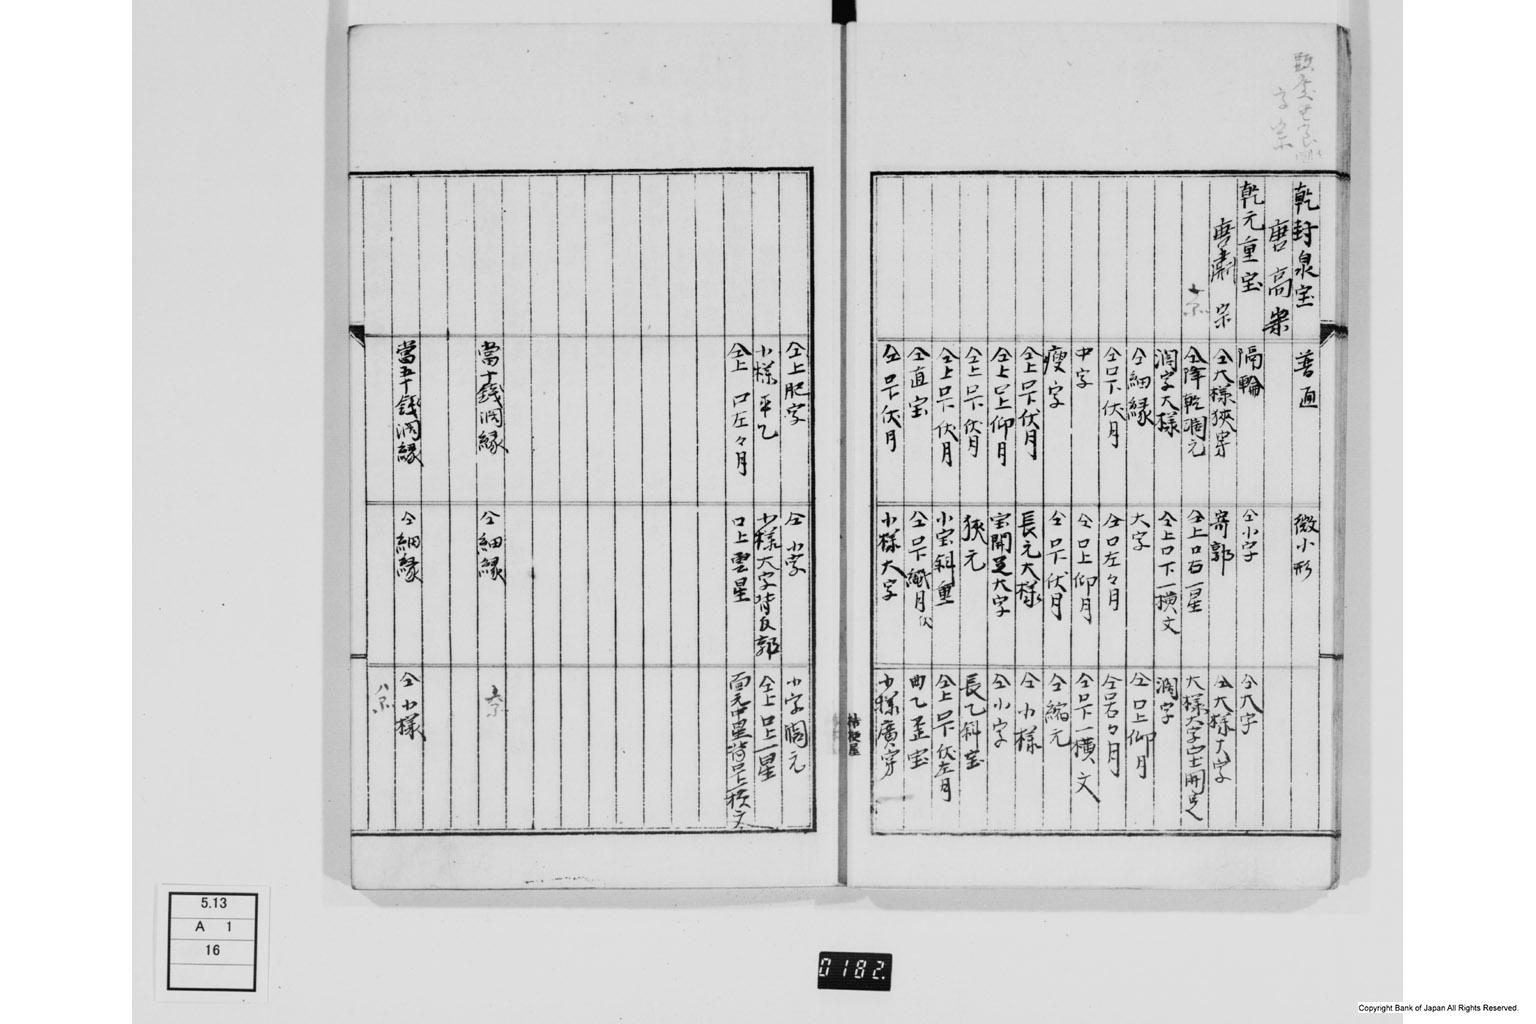 乾封泉宝
唐高宗
乾元重宝
唐肅宗
普通
隔輪
仝大様狭穿
仝降乾濶元
濶字大様
仝細縁
仝口下伏月
中字
痩字
仝上口下伏月
仝上口上仰月
仝上口下伏月
仝上口下伏月
仝直宝
仝口下伏月
微小形
仝小字
寄郭
仝上口右一星
仝上口下一横文
大字
仝口左々月
仝口上仰月
仝口下伏月
長元大様
宝開足大字
狭元
小宝斜重
小様大字
仝大字
仝大様大字
濶字
仝口上仰月
仝口右々月
仝口下一横文
仝縮元
仝小様
仝小字
長乙斜宝
仝上口下伏左月
曲乙歪宝
小様廣穿
桔梗屋
仝上肥字
小様平乙
仝上口左々月
當十銭濶縁
當五十銭濶縁
仝小字
小様大字背反郭
口上雲星
仝細縁
仝細縁
小字濶元
仝上口上一星
仝小様
5.13
A 1
16
0182.
Copyright Bank of Japan All Rights Reserved.